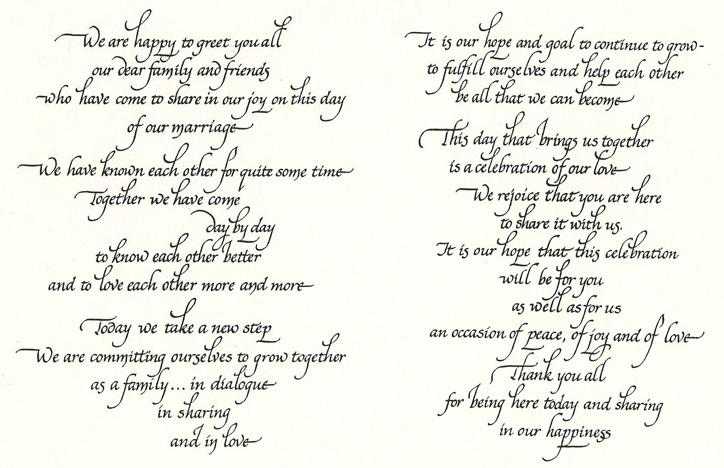 We are happy to greet you all
our dear family and friends
who have come to share in our joy on this day
of our marriage
We have known each other for quite some time
Together we have come
day by day
to know each other better
and to love each other more and more
Today we take a new step
We are committing ourselves to grow together
as a family... in dialogue
in sharing
and in love
It is our hope and goal to continue to grow-
to fulfill ourselves and help each other
be all that we can become
This day that brings us together
is a celebration of our love
We rejoice that you are here
to share it with us.
It is our hope that this celebration
will be for you
as well as for us
an occasion of peace, of joy and of love
Thank you all
for being here today and sharing
in our happiness